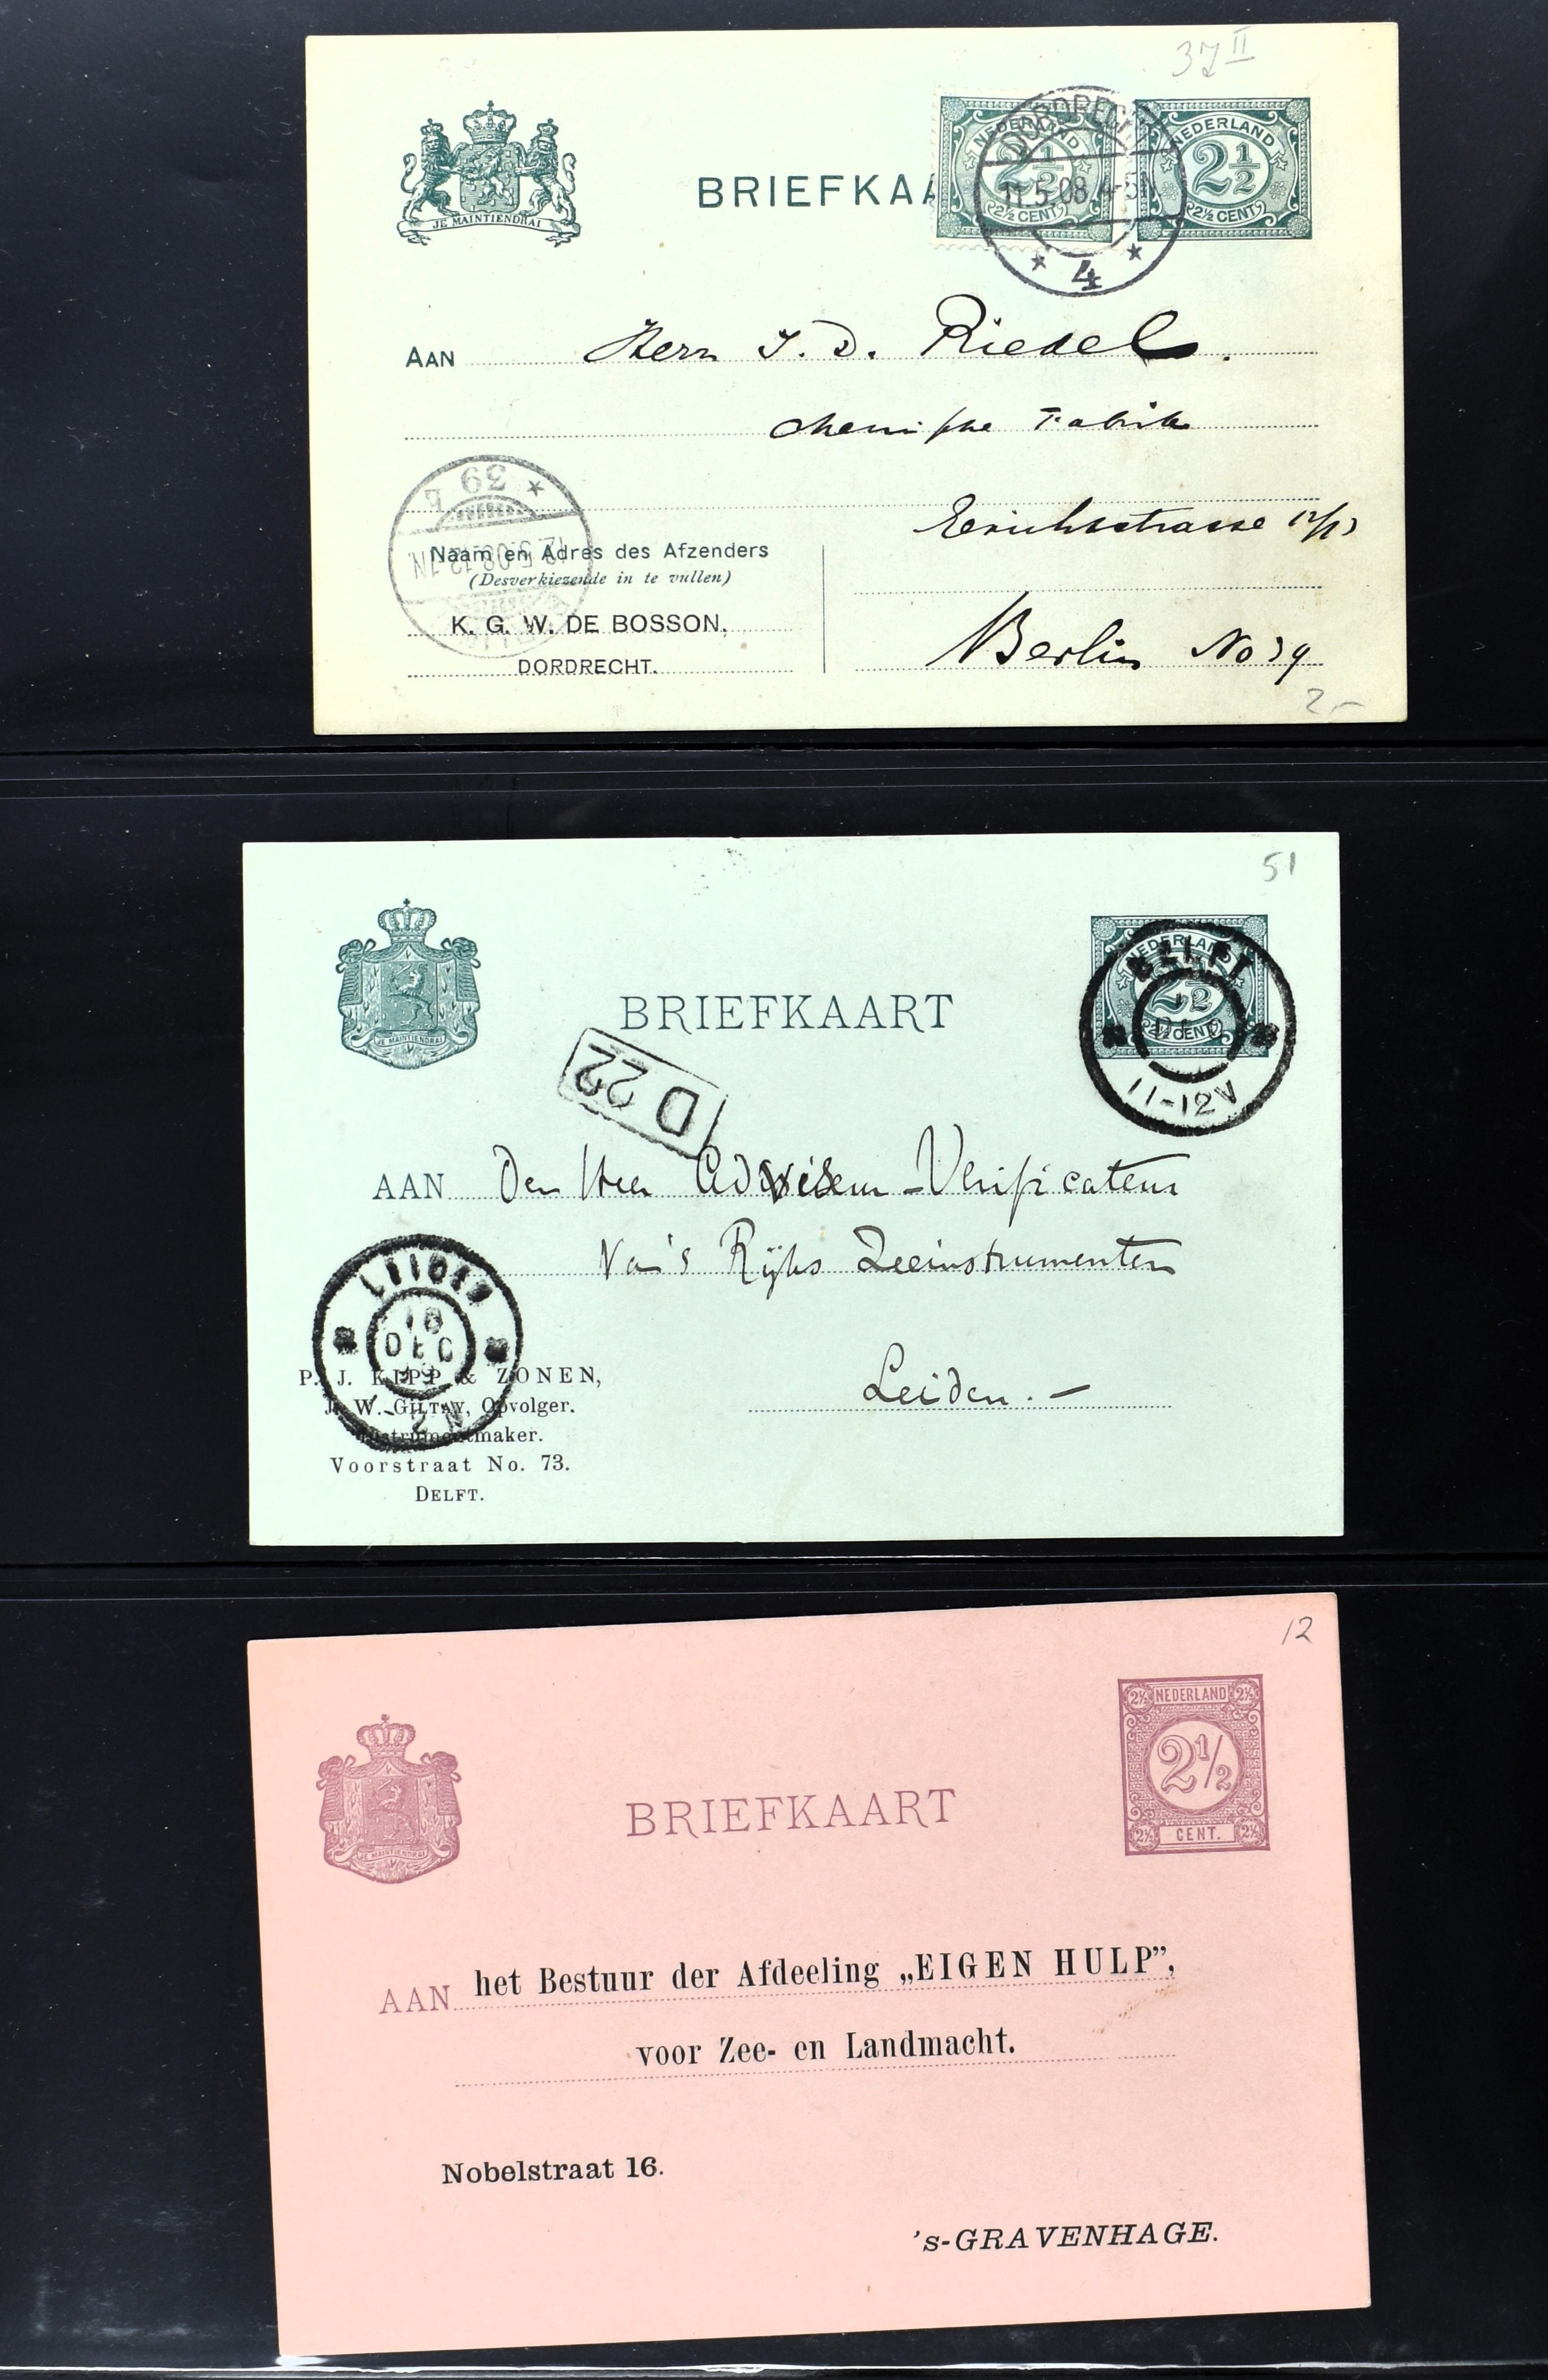 37 II
JE MAINTIENDRAI
BRIEFKAA
NEDERLAND
2 1/2
2½ CENT
NEDERLAND
2 1/2
2½ CENT
DORDRECHT
11.5.08 4-5N
4
AAN Herrn J. D. Riedel.
chemische Fabrik
39
Naam en Adres des Afzenders
(Desverkiezende in te vullen)
K. G. W. DE BOSSON,
DORDRECHT.
Berlin No 39
2,-
51
JE MAINTIENDRAI
BRIEFKAART
NEDERLAND
2 1/2
2½ CENT
DELFT
11-12V
D 22
AAN Den Heer Adviseur-Verificateur
Van 's Rijks Zeeinstrumenten
Leiden.-
LEIDEN
18
DEC
P. J. KIPP & ZONEN,
J. W. GILTAY, Opvolger.
Instrumentmaker.
Voorstraat No. 73.
DELFT.
12
JE MAINTIENDRAI
BRIEFKAART
2½ NEDERLAND 2½
2½
2½ CENT. 2½
AAN het Bestuur der Afdeeling „EIGEN HULP”,
voor Zee- en Landmacht.
Nobelstraat 16.
's-GRAVENHAGE.